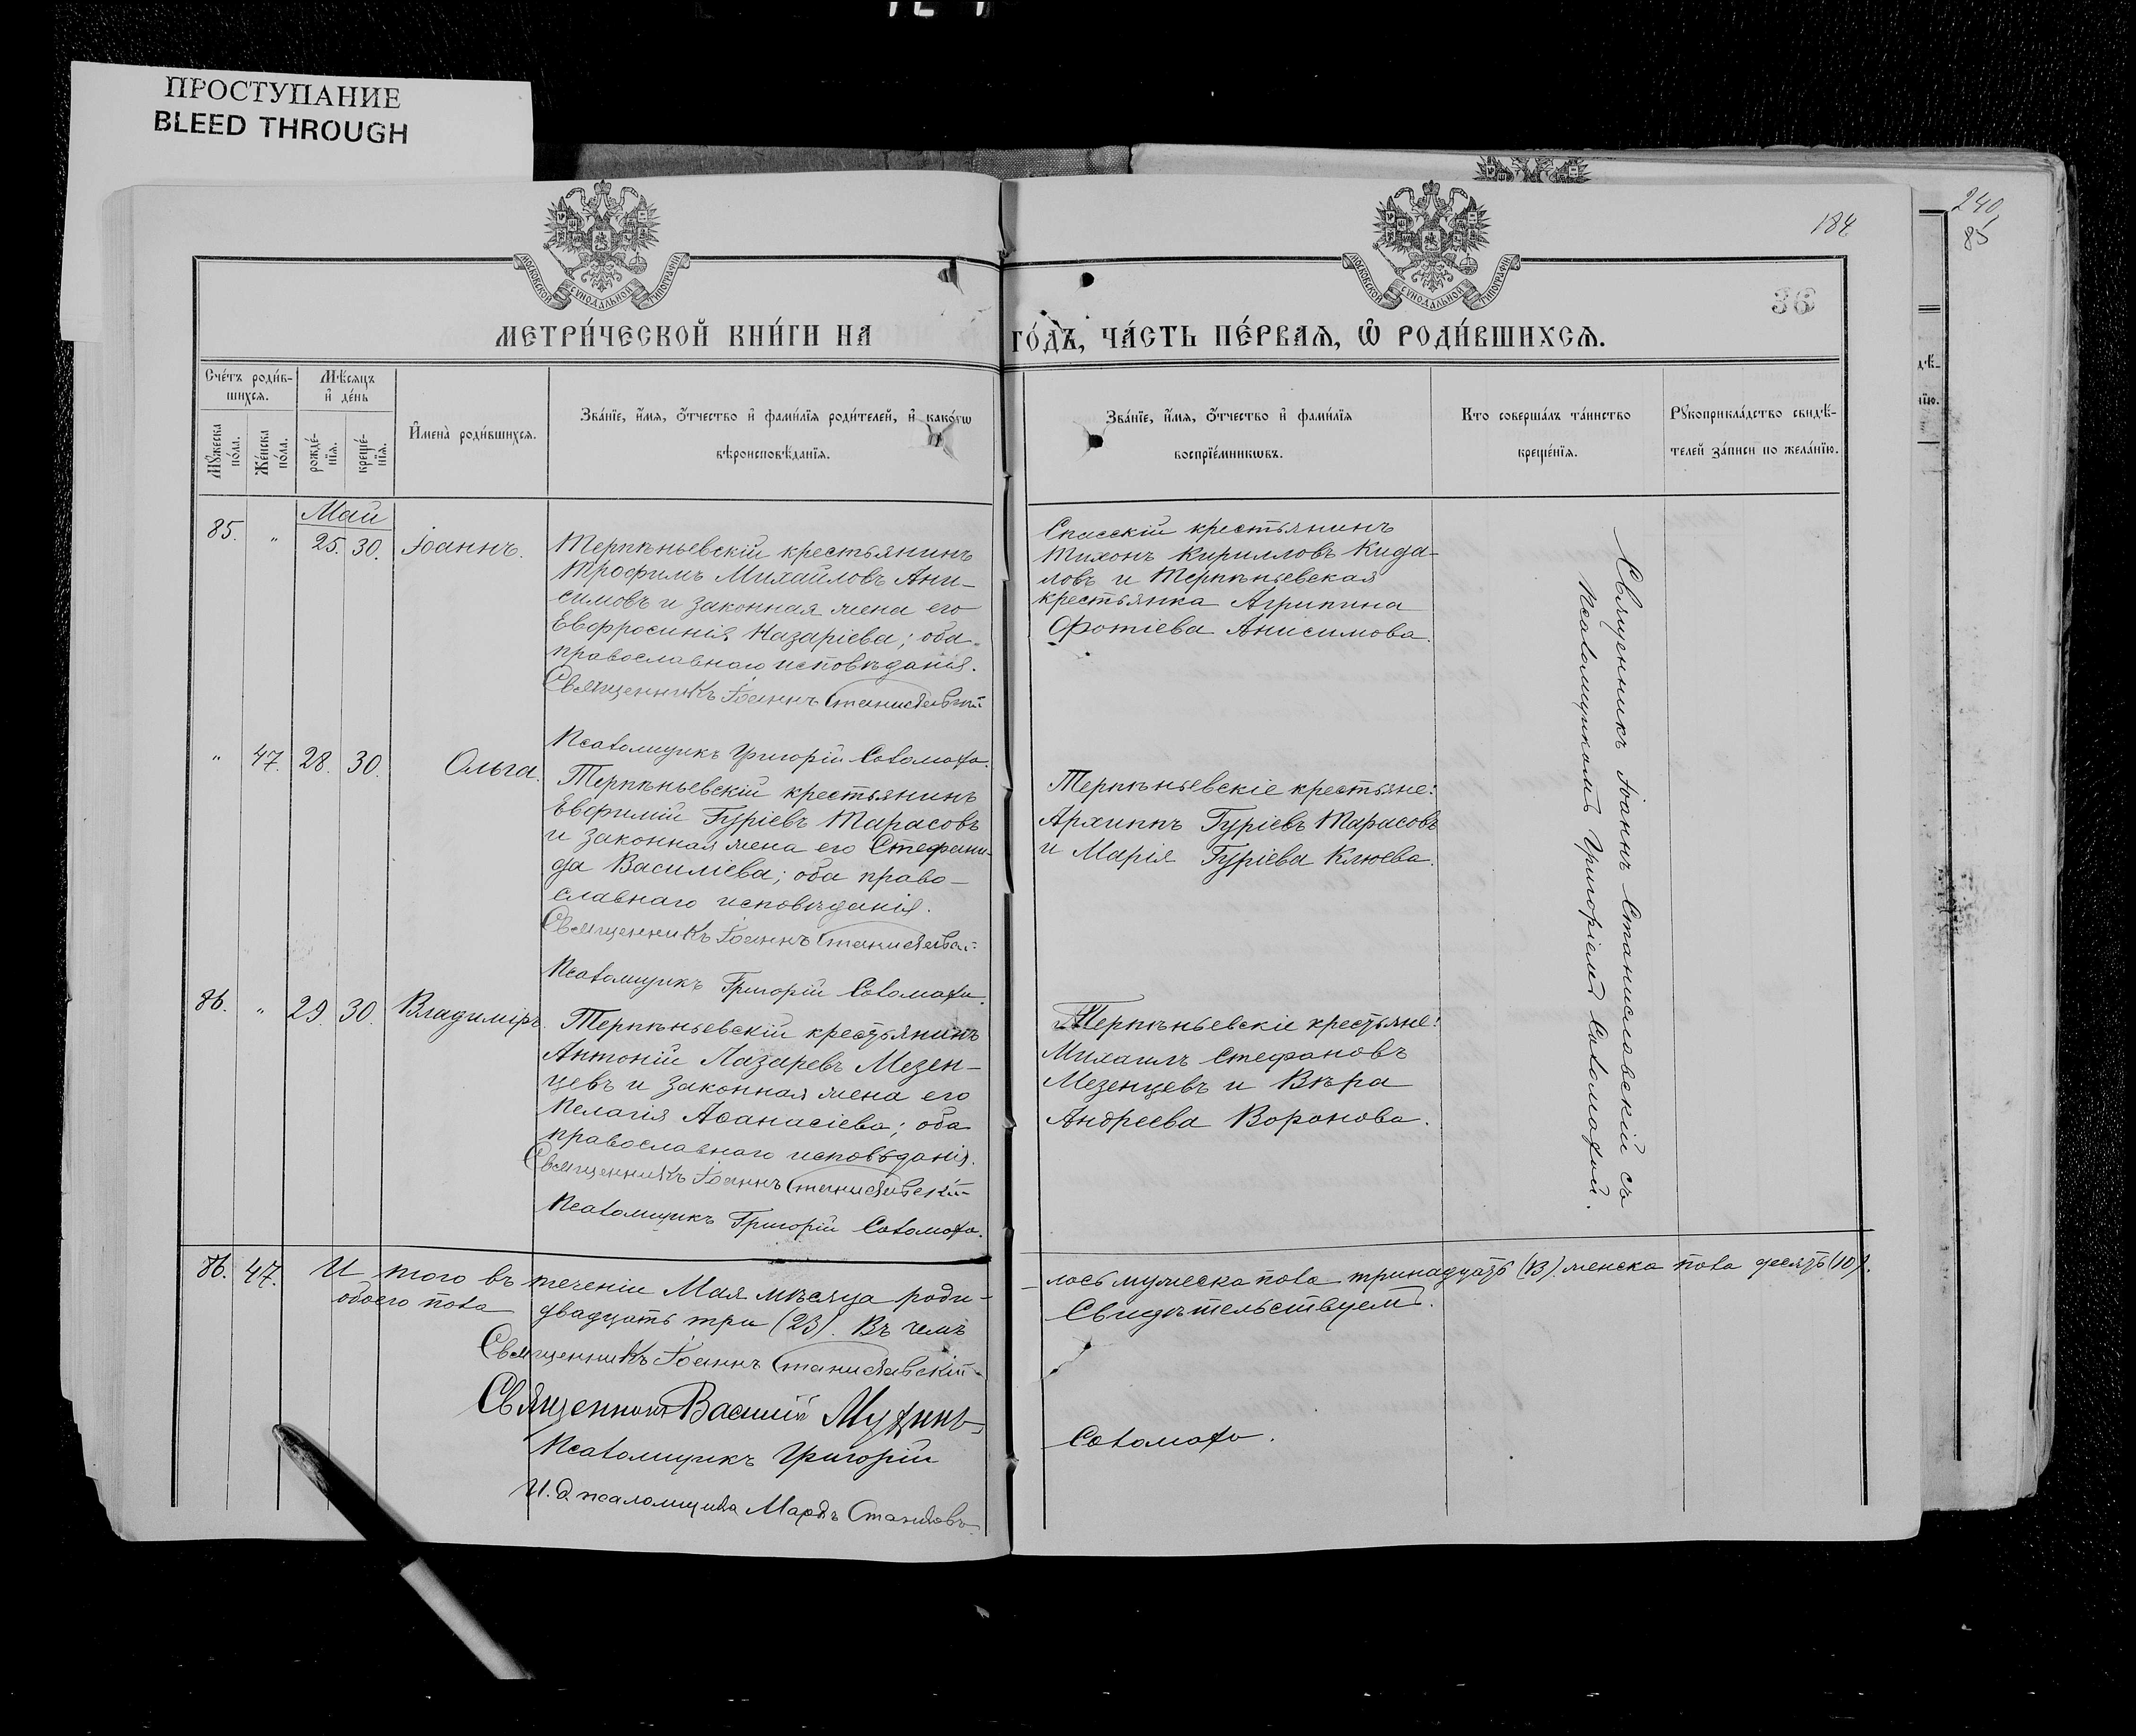 ПРОСТУПАНИЕ
BLEED THROUGH
240
85
184
36
МОСКОВСКОЙ СУНОДАЛЬНОЙ ТИПОГРАФІИ
МОСКОВСКОЙ СУНОДАЛЬНОЙ ТИПОГРАФІИ
МЕТРИ́ЧЕСКОЙ КНИ́ГИ НА
ГО́ДЪ, ЧА́СТЬ ПЕ́РВАѦ, Ѡ҆ РОДИ́ВШИХСѦ.
Сче́тъ роди́в-
шихсѧ.
Мꙋ́жеска по́ла.
Же́нска по́ла.
Мѣ́сѧцъ
и҆ де́нь
рожде́-
нїѧ.
креще́-
нїѧ.
И҆мена̀ роди́вшихсѧ.
Зва́нїе, и҆́мѧ, ѻ҆́тчество и҆ фами́лїѧ роди́телей, и҆ како́гѡ
вѣроисповѣ́данїѧ.
Зва́нїе, и҆́мѧ, ѻ҆́тчество и҆ фами́лїѧ
воспрїе́мникѡвъ.
Кто̀ соверша́лъ та́инство
креще́нїѧ.
Рꙋкоприкла́дство свидѣ́-
телей за́писи по жела́нїю.
Май
85. " 25. 30. Іоаннъ.
Терпѣньевскій крестьянинъ
Трофимъ Михайловъ Ани-
симовъ и законная жена его
Евфросинія Назаріева; оба
православнаго исповѣданія.
Священникъ Іоаннъ Станиславскій
Псаломщикъ Григорій Соломаха.
Спасскій крестьянинъ
Тихонъ Кирилловъ Кида-
ловъ и Терпѣньевская
крестьянка Агрипина
Фотіева Анисимова.
" 47. 28. 30. Ольга.
Терпѣньевскій крестьянинъ
Евфимій Гуріевъ Тарасовъ
и законная жена его Стефани-
да Василіева; оба право-
славнаго исповѣданія.
Священникъ Іоаннъ Станиславскій
Псаломщикъ Григорій Соломаха.
Терпѣньевскіе крестьяне:
Архиппъ Гуріевъ Тарасовъ
и Марія Гуріева Клюева.
86. " 29. 30. Владиміръ.
Терпѣньевскій крестьянинъ
Антоній Лазаревъ Мезен-
цевъ и законная жена его
Пелагія Аѳанасіева; оба
православнаго исповѣданія.
Священникъ Іоаннъ Станиславскій
Псаломщикъ Григорій Соломаха.
Терпѣньевскіе крестьяне:
Михаилъ Стефановъ
Мезенцевъ и Вѣра
Андреева Воронова.
Священникъ Іоаннъ Станиславскій съ
Псаломщикомъ Григоріемъ Соломахой.
86. 47. И того въ теченіи Мая мѣсяца роди-
лось мужеска пола тринадцать (13). женска пола десять (10).
обоего пола двадцать три (23). Въ чемъ
Свидѣтельствуемъ.
Священникъ Іоаннъ Станиславскій
Священникъ Василій Мухинъ
Псаломщикъ Григорій
Соломаха.
И. д. псаломщика Маркъ